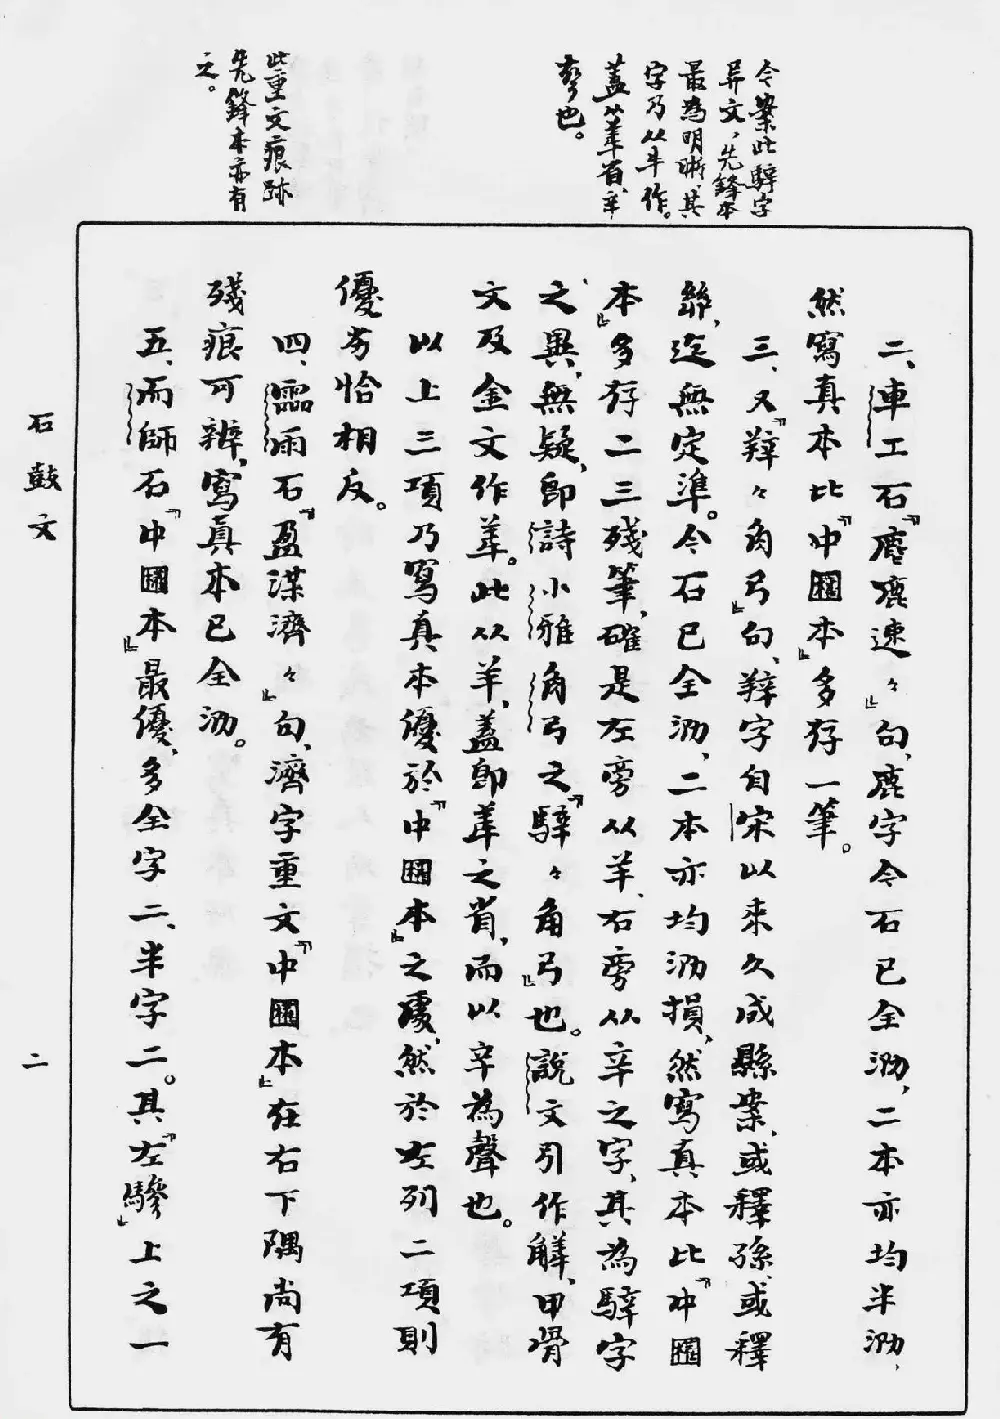 今案此騂字
异文，先鋒本
最為明晰，其
字乃从牛作。
蓋从
也。
此重文痕跡
先鋒本亦有
之。
二、車工石『麀鹿速々』句，鹿字今石已全泐，二本亦均半泐，
然寫真本比『中國本』多存一筆。
三、又『々角弓』句，字自宋以來久成縣案，或釋孫，或釋
，迄無定準。今石已全泐，二本亦均泐損，然寫真本比『中國
本』多存二三殘筆，確是左旁从羊、右旁从辛之字，其為騂字
之異，無疑，即詩小雅角弓之『騂々角弓』也。說文引作觲，甲骨
文及金文作。此从羊，蓋即之省，而以辛為聲也。
以上三項乃寫真本優於『中國本』之處，然於左列二項則
優劣恰相反。
四、霝雨石『盈渫濟々』句，濟字重文『中國本』在右下隅尚有
殘痕可辨，寫真本已全泐。
五、而師石『中國本』最優，多全字二、半字二。其『左驂』上之一
石鼓文
二